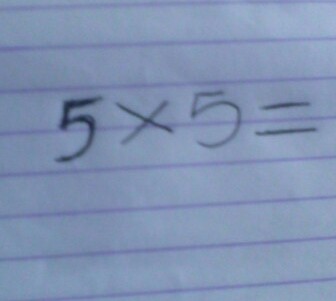 5×5=